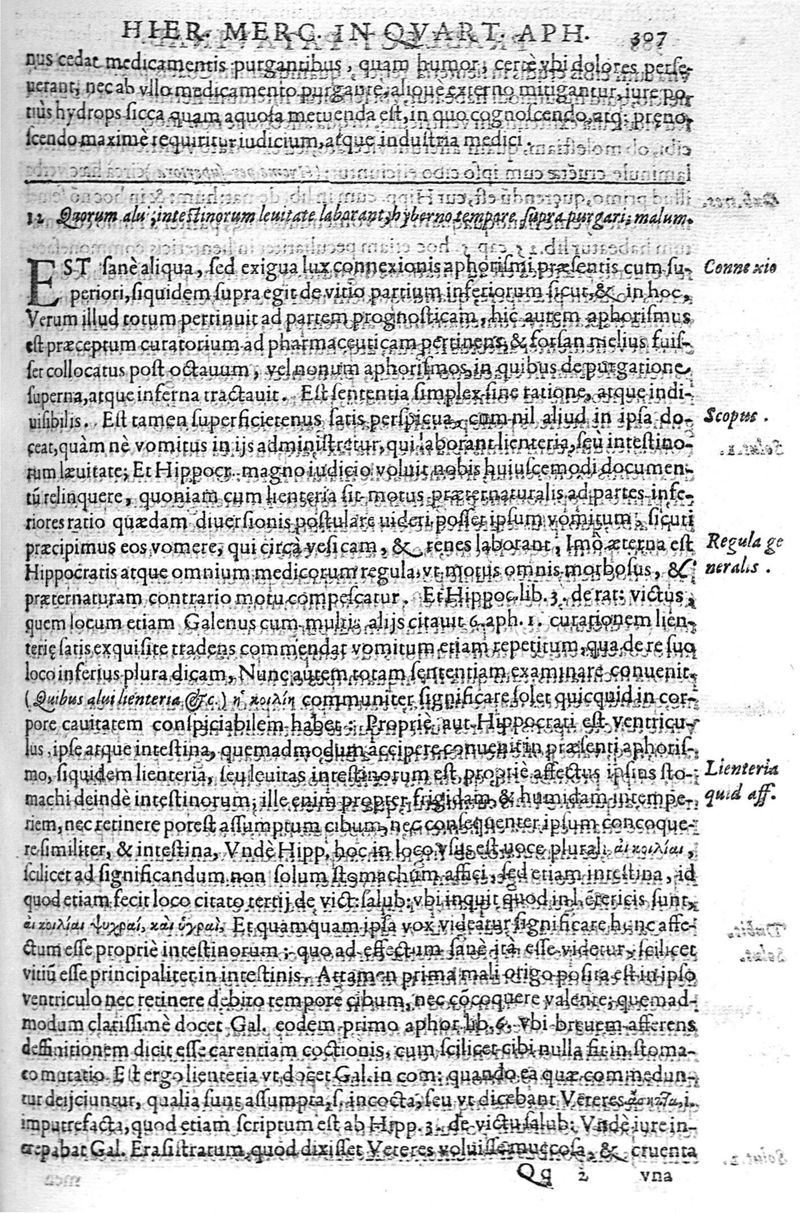 HIER. MERC. IN QVART. APH. 307
nus cedat medicamentis purgantibus, quam humor, certè vbi dolores perse-
uerant, nec ab vllo medicamento purgante, alioue externo mitigantur, iure po-
tiùs hydrops sicca quam aquosa metuenda est, in quo cognoscendo, atq; preno-
scendo maximè requiritur iudicium, atque industria medici.
12 Quorum alui, intestinorum leuitate laborant, hyberno tempore, supra purgari, malum.
EST sanè aliqua, sed exigua lux connexionis aphorismi præsentis cum su-
Connexio
periori, siquidem supra egit de vitio partium inferiorum sicut, & in hoc,
Verum illud totum pertinuit ad partem prognosticam, hic autem aphorismus
est præceptum curatorium ad pharmaceuticam pertinens, & forsan melius fuis-
set collocatus post octauum, vel nonum aphorismos, in quibus de purgatione
superna, atque inferna tractauit. Est sententia simplex sine ratione, atque indi-
uisibilis. Est tamen superficietenus satis perspicua, cum nil aliud in ipsa do-
Scopus.
ceat, quàm nè vomitus in ijs administretur, qui laborant lienteria, seu intestino-
rum læuitate; Et Hippocr. magno iudicio voluit nobis huiuscemodi documen-
tũ relinquere, quoniam cum lienteria sit motus præternaturalis ad partes infe-
riores ratio quædam diuersionis postulare uideri posset ipsum vomitum, sicuti
præcipimus eos vomere, qui circà vesicam, & renes laborant, Imò æterna est
Regula ge
Hippocratis atque omnium medicorum regula, vt motus omnis morbosus, &
neralis.
præternaturam contrario motu compescatur. Et Hippoc. lib. 3. de rat: victus,
quem locum etiam Galenus cum multis alijs citauit 6. aph. 1. curationem lien-
terię satis exquisite tradens commendat vomitum etiam repetitum, qua de re suo
loco inferius plura dicam, Nunc autem totam sententiam examinare conuenit,
(Quibus alui lienteria &c.) ἡ κοιλίη communiter significare solet quicquid in cor-
pore cauitatem conspiciabilem habet: Propriè aut Hippocrati est ventricu-
lus ipse atque intestina, quemadmodum accipere conuenit in præsenti aphoris-
mo, siquidem lienteria, seu leuitas intestinorum est, propriè affectus ipsius sto-
Lienteria
machi deindè intestinorum; ille enim propter frigidam, & humidam intempe-
quid aff.
riem, nec retinere potest assumptum cibum, nec consequenter ipsum concoque-
re similiter, & intestina, Vndè Hipp, hoc in loco vsus est uoce plurali αἱ κοιλίαι,
scilicet ad significandum non solum stomachum affici, sed etiam intestina, id
quod etiam fecit loco citato tertij de vict: salub: vbi inquit quod in
sunt,
αἱ κοιλίαι ψυχραὶ, καὶ ὑγραὶ. Et quamquam ipsa vox videatur significare hunc affe-
ctum esse propriè intestinorum; quo ad effectum sanè ità esse videtur, scilicet
vitiũ esse principaliter in intestinis. Attamen prima mali origo posita est in ipso
ventriculo nec retinere debito tempore cibum, nec cõcoquere valente; quemad-
modum clarissimè docet Gal. eodem primo aphor. lib. 6. vbi breuem afferens
deffinitionem dicit esse carentiam coctionis, cum scilicet cibi nulla fit in stoma-
co mutatio. Est ergo lienteria vt docet Gal. in com: quando ea quæ commedun-
tur deijciuntur, qualia sunt assumpta, s. incocta, seu vt dicebant Veteres
i.
imputrefacta, quod etiam scriptum est ab Hipp. 3. de victu salub: Vndè iure in-
crepabat Gal. Erasistratum, quod dixisset Veteres voluisse muccosa, & cruenta
Qq 2 vna